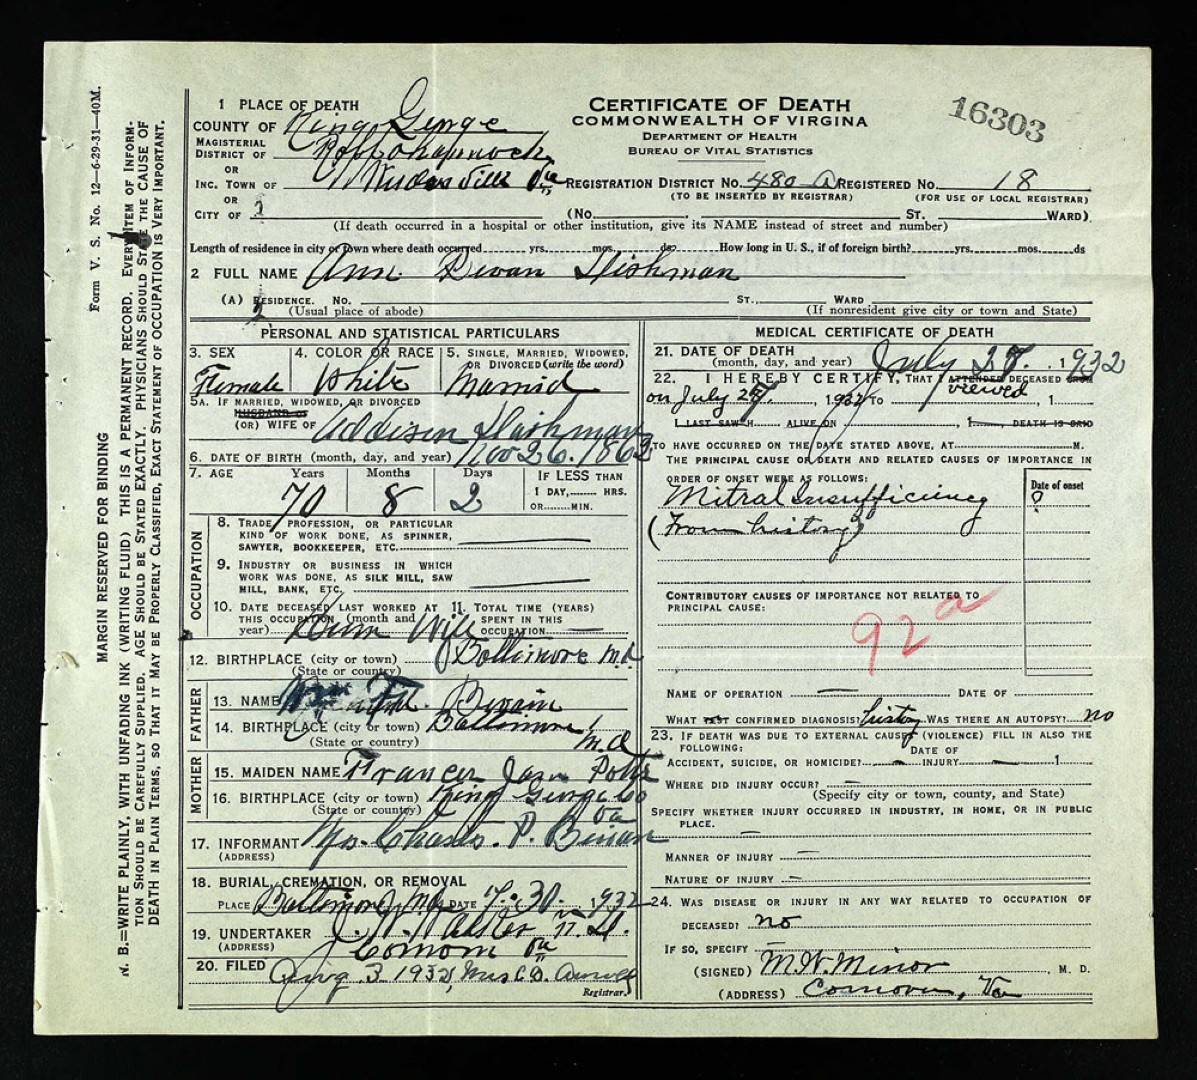 Form V. S. No. 12—6-29-31—40M.
MARGIN RESERVED FOR BINDING
N. B.—WRITE PLAINLY, WITH UNFADING INK (WRITING FLUID) THIS IS A PERMANENT RECORD. EVERY ITEM OF INFORM-
TION SHOULD BE CAREFULLY SUPPLIED. AGE SHOULD BE STATED EXACTLY. PHYSICIANS SHOULD STATE THE CAUSE OF
DEATH IN PLAIN TERMS, SO THAT IT MAY BE PROPERLY CLASSIFIED, EXACT STATEMENT OF OCCUPATION IS VERY IMPORTANT.
CERTIFICATE OF DEATH
COMMONWEALTH OF VIRGINIA
DEPARTMENT OF HEALTH
BUREAU OF VITAL STATISTICS
16303
1 PLACE OF DEATH
COUNTY OF King George
MAGISTERIAL
DISTRICT OF
OR
INC. TOWN OF Va REGISTRATION DISTRICT NO. 480-A REGISTERED NO. 18
(TO BE INSERTED BY REGISTRAR) (FOR USE OF LOCAL REGISTRAR)
OR
CITY OF (No. ST. WARD)
(If death occurred in a hospital or other institution, give its NAME instead of street and number)
Length of residence in city or town where death occurred yrs. mos. ds. How long in U. S., if of foreign birth? yrs. mos. ds
2 FULL NAME Ann Bevan Dishman
(A) RESIDENCE. NO. ST., WARD
(Usual place of abode) (If nonresident give city or town and State)
PERSONAL AND STATISTICAL PARTICULARS
3. SEX 4. COLOR OR RACE 5. SINGLE, MARRIED, WIDOWED, OR DIVORCED (write the word)
Female White Married
5A. IF MARRIED, WIDOWED, OR DIVORCED
HUSBAND OF
(OR) WIFE OF Addison Dishman
6. DATE OF BIRTH (month, day, and year) Nov 26. 1862
7. AGE Years Months Days IF LESS THAN
1 DAY, HRS.
OR MIN.
70 8 2
OCCUPATION
8. TRADE, PROFESSION, OR PARTICULAR
KIND OF WORK DONE, AS SPINNER,
SAWYER, BOOKKEEPER, ETC.
9. INDUSTRY OR BUSINESS IN WHICH
WORK WAS DONE, AS SILK MILL, SAW
MILL, BANK, ETC.
10. DATE DECEASED LAST WORKED AT
THIS OCCUPATION (month and
year)
11. TOTAL TIME (YEARS)
SPENT IN THIS
OCCUPATION
Wife
12. BIRTHPLACE (city or town) Baltimore Md
(State or country)
FATHER
13. NAME Wm Bevan
14. BIRTHPLACE (city or town) Baltimore
(State or country) Md
MOTHER
15. MAIDEN NAME Frances Jane Potts
16. BIRTHPLACE (city or town) King George Co
(State or country) Va
17. INFORMANT Mrs. Charles. P. Bevan
(ADDRESS)
18. BURIAL, CREMATION, OR REMOVAL
PLACE Baltimore, Md DATE 7-30 1932
19. UNDERTAKER
(ADDRESS) Va
20. FILED Aug 3 1932, Mrs
Registrar.
MEDICAL CERTIFICATE OF DEATH
21. DATE OF DEATH
(month, day, and year) July 28. 1932
22. I HEREBY CERTIFY, THAT I ATTENDED DECEASED FROM
viewed
on July 28, 1932 TO , 1
I LAST SAW H ALIVE ON , 1 , DEATH IS SAID
TO HAVE OCCURRED ON THE DATE STATED ABOVE, AT M.
THE PRINCIPAL CAUSE OF DEATH AND RELATED CAUSES OF IMPORTANCE IN
ORDER OF ONSET WERE AS FOLLOWS:
Date of onset
Mitral Insufficiency ?
(From history)
CONTRIBUTORY CAUSES OF IMPORTANCE NOT RELATED TO
PRINCIPAL CAUSE:
92a
NAME OF OPERATION — DATE OF
WHAT TEST CONFIRMED DIAGNOSIS? history WAS THERE AN AUTOPSY? no
23. IF DEATH WAS DUE TO EXTERNAL CAUSES (VIOLENCE) FILL IN ALSO THE
FOLLOWING:
ACCIDENT, SUICIDE, OR HOMICIDE? — DATE OF INJURY — 1
WHERE DID INJURY OCCUR?
(Specify city or town, county, and State)
SPECIFY WHETHER INJURY OCCURRED IN INDUSTRY, IN HOME, OR IN PUBLIC
PLACE. —
MANNER OF INJURY —
NATURE OF INJURY —
24. WAS DISEASE OR INJURY IN ANY WAY RELATED TO OCCUPATION OF
DECEASED? no
IF SO, SPECIFY —
(SIGNED) M. W. Minor, M. D.
(ADDRESS) Comorn, Va